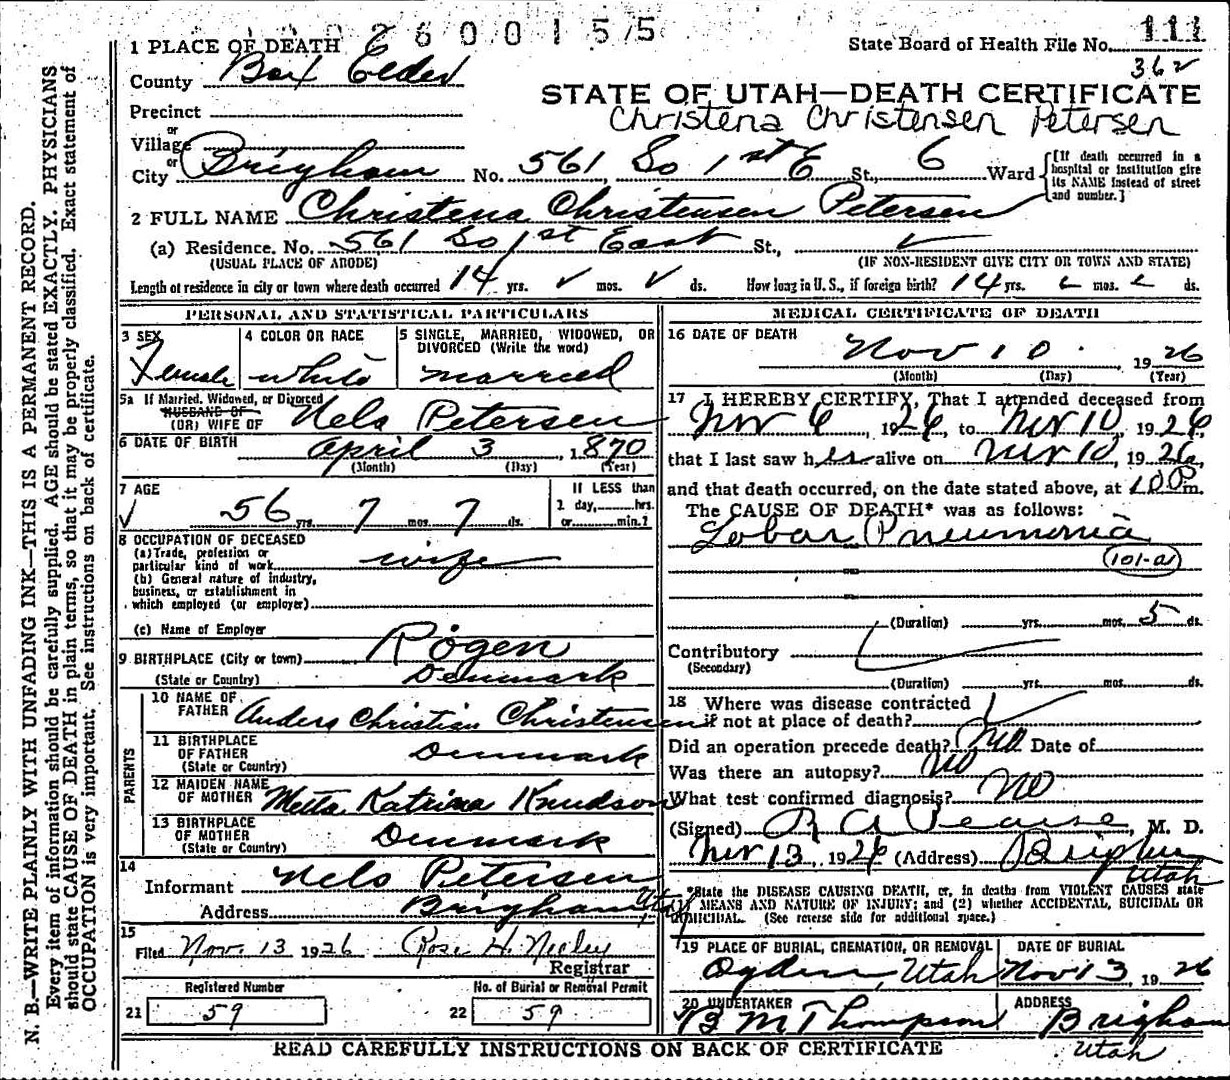 2600155
111
1 PLACE OF DEATH
State Board of Health File No.
362
County Box Elder
STATE OF UTAH—DEATH CERTIFICATE
Christena Christensen Petersen
Precinct
or
Village
or
City Brigham No. 561 So 1st E St., 6 Ward
[If death occurred in a hospital or institution give its NAME instead of street and number.]
2 FULL NAME Christena Christensen Petersen
(a) Residence. No. 561 So 1st East St.,
(USUAL PLACE OF ABODE)
(IF NON-RESIDENT GIVE CITY OR TOWN AND STATE)
Length of residence in city or town where death occurred 14 yrs. mos. ds. How long in U. S., if foreign birth? 14 yrs. mos. ds.
PERSONAL AND STATISTICAL PARTICULARS
3 SEX
Female
4 COLOR OR RACE
white
5 SINGLE, MARRIED, WIDOWED, OR DIVORCED (Write the word)
married
5a If Married, Widowed, or Divorced
HUSBAND OF
(OR) WIFE OF Nels Petersen
6 DATE OF BIRTH April 3, 1870
(Month) (Day) (Year)
7 AGE
56 yrs. 7 mos. 7 ds.
If LESS than
1 day, hrs.
or min.?
8 OCCUPATION OF DECEASED
(a) Trade, profession or
particular kind of work wife
(b) General nature of industry,
business, or establishment in
which employed (or employer)
(c) Name of Employer
9 BIRTHPLACE (City or town) Rögen
(State or Country) Denmark
PARENTS
10 NAME OF
FATHER Anders Christian Christensen
11 BIRTHPLACE
OF FATHER Denmark
(State or Country)
12 MAIDEN NAME
OF MOTHER Metta Katrina Knudson
13 BIRTHPLACE
OF MOTHER Denmark
(State or Country)
14
Informant Nels Petersen
Address Brigham Utah
15
Filed Nov. 13 1926 Rose H. Neeley
Registrar
Registered Number
21 59
No. of Burial or Removal Permit
22 59
MEDICAL CERTIFICATE OF DEATH
16 DATE OF DEATH
Nov 10 1926
(Month) (Day) (Year)
17 I HEREBY CERTIFY, That I attended deceased from
Nov 6, 1926, to Nov 10, 1926,
that I last saw her alive on Nov 10, 1926,
and that death occurred, on the date stated above, at 10 P m.
The CAUSE OF DEATH* was as follows:
Lobar Pneumonia
101-a
(Duration) yrs. mos. 5 ds.
Contributory
(Secondary)
(Duration) yrs. mos. ds.
18 Where was disease contracted
if not at place of death?
Did an operation precede death? No Date of
Was there an autopsy? No
What test confirmed diagnosis? No
(Signed) R A Pearse, M. D.
Nov 13, 1926 (Address) Brigham Utah
*State the DISEASE CAUSING DEATH, or, in deaths from VIOLENT CAUSES state
(1) MEANS AND NATURE OF INJURY; and (2) whether ACCIDENTAL, SUICIDAL OR
HOMICIDAL. (See reverse side for additional space.)
19 PLACE OF BURIAL, CREMATION, OR REMOVAL
Ogden, Utah
DATE OF BURIAL
Nov 13 1926
20 UNDERTAKER
B M Thompson
ADDRESS
Brigham
Utah
READ CAREFULLY INSTRUCTIONS ON BACK OF CERTIFICATE
N. B.—WRITE PLAINLY WITH UNFADING INK—THIS IS A PERMANENT RECORD.
Every item of information should be carefully supplied. AGE should be stated EXACTLY. PHYSICIANS
should state CAUSE OF DEATH in plain terms, so that it may be properly classified. Exact statement of
OCCUPATION is very important. See instructions on back of certificate.